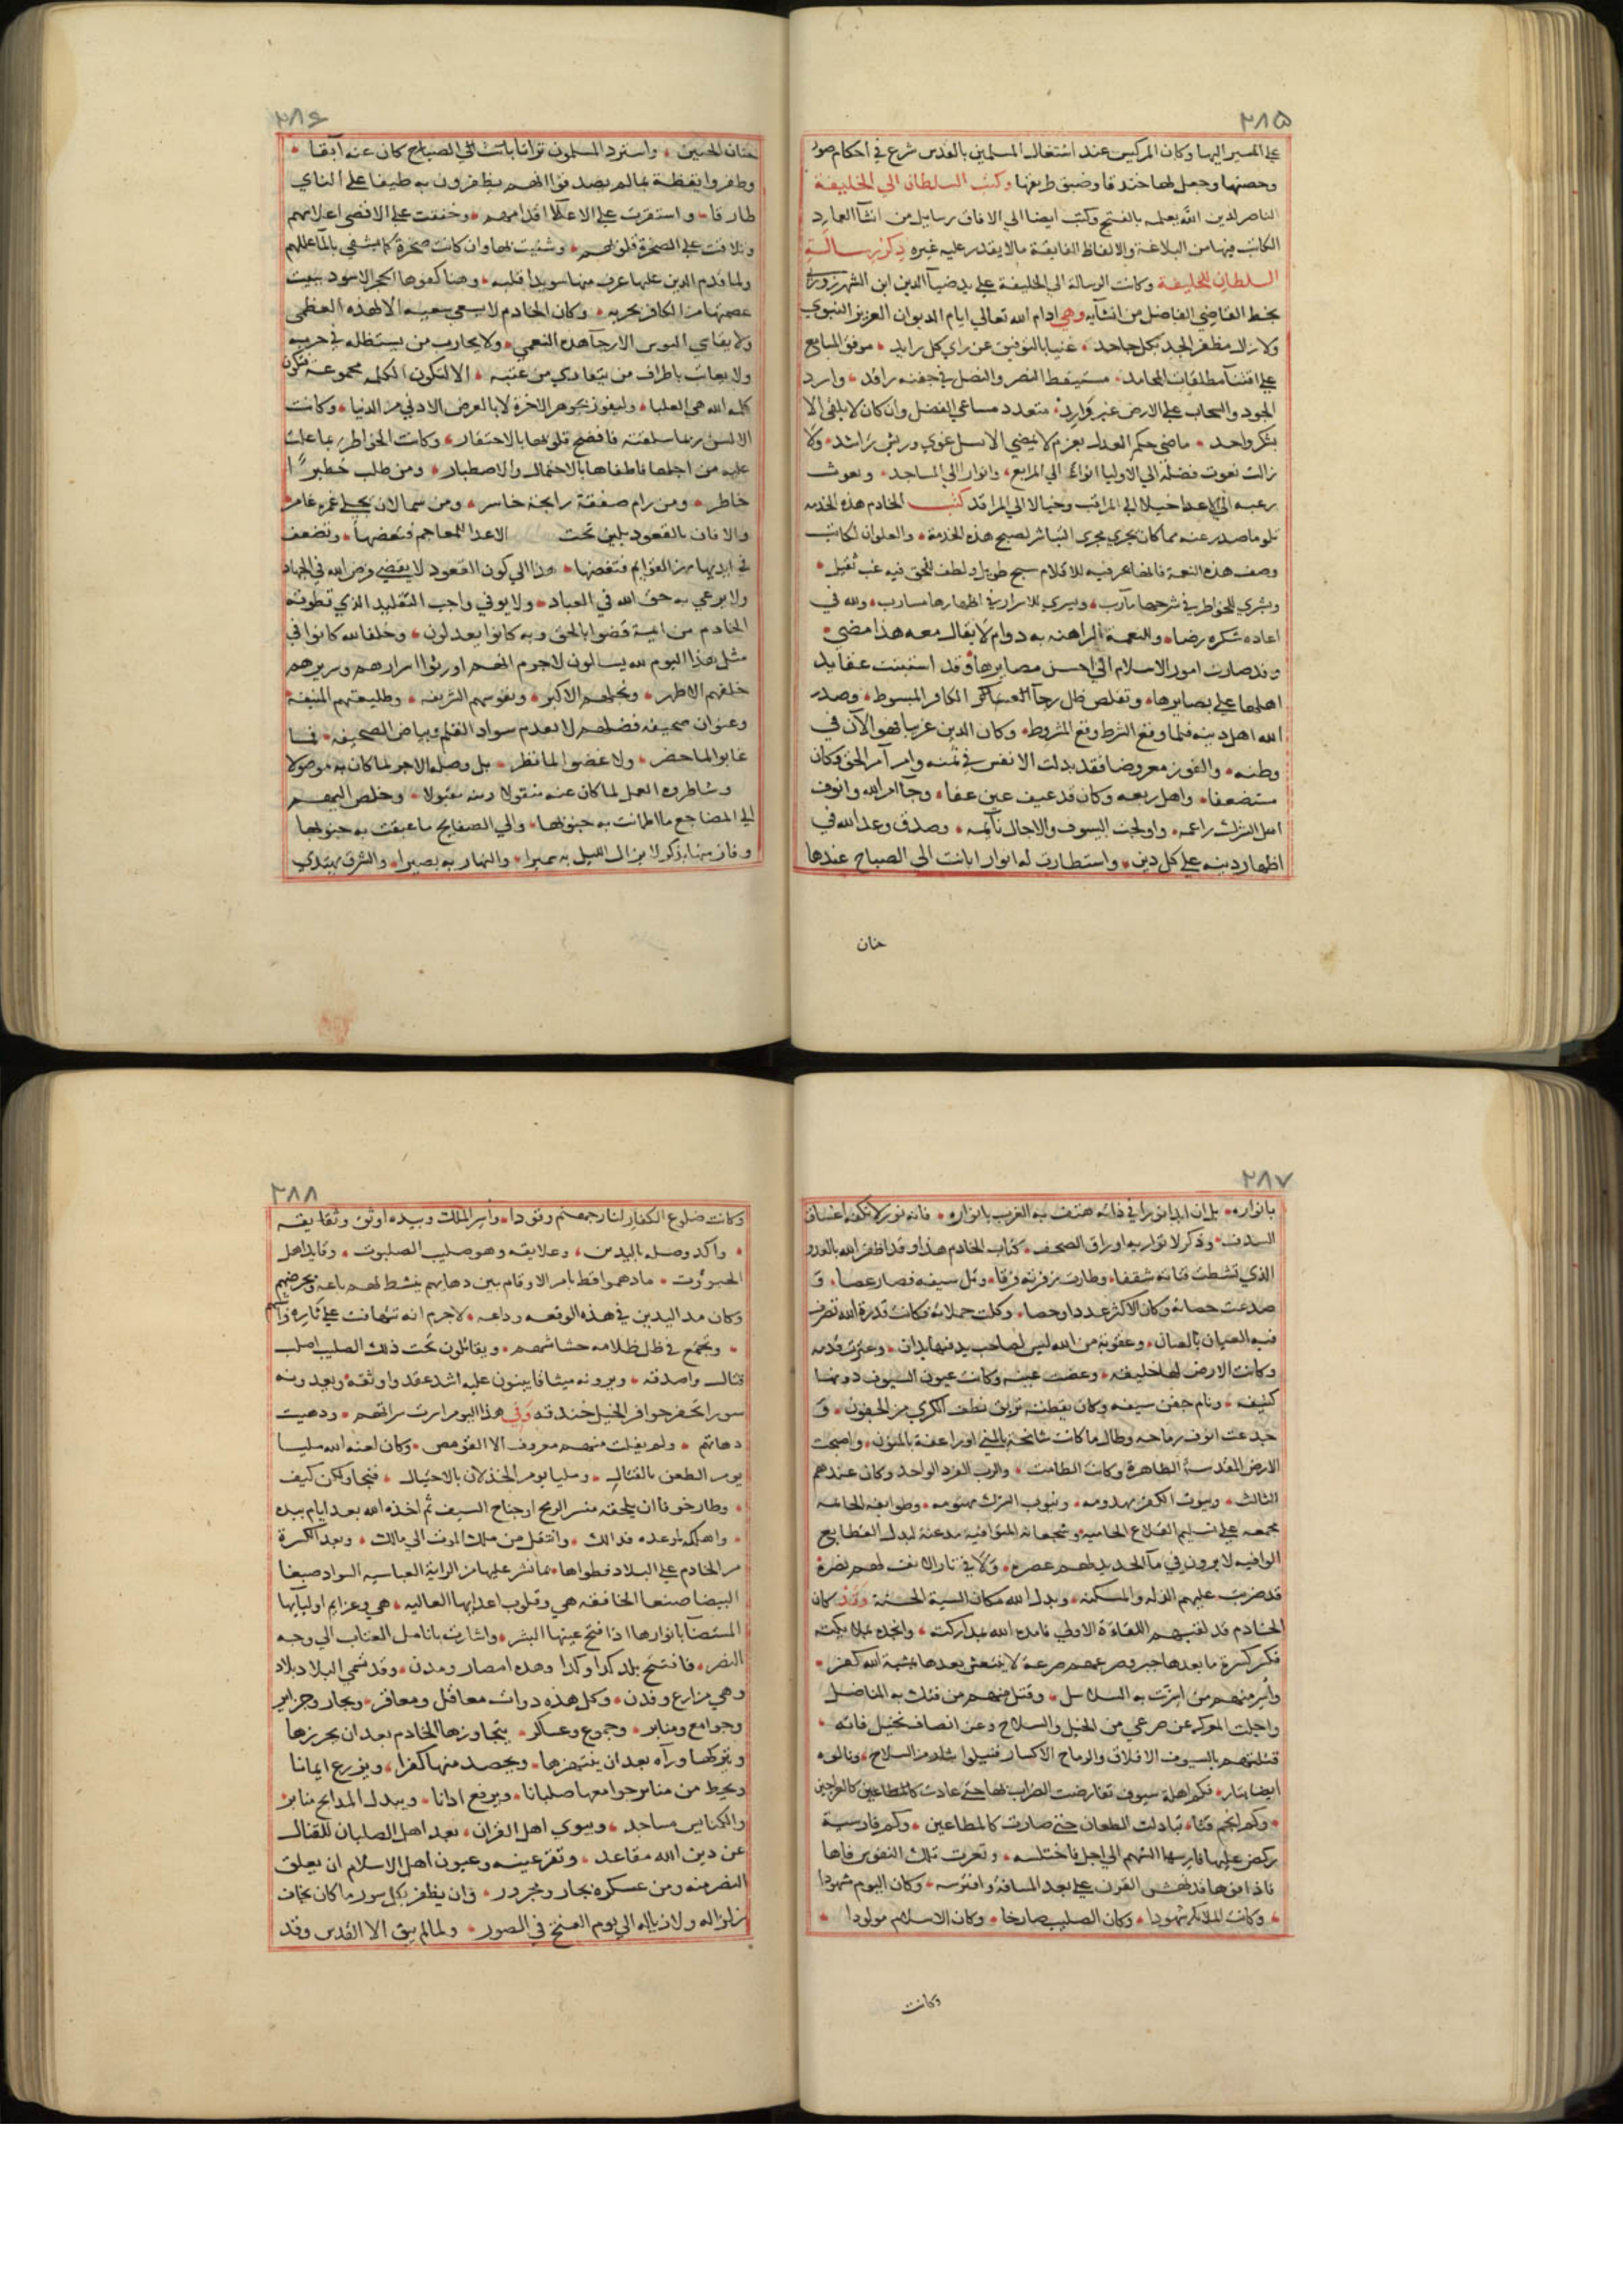 ٢٨٥
على المسير اليها وكان المركيس عند اشتغال المسلمين بالقدس شرع في احكام صور
وحصنها وجعل لها خندقا وضيق طريقها وكتب السلطان الي الخليفة
الناصر لدين الله يعلمه بالفتح وكتب ايضا الي الافاق رسايل من انشآ العماد
الكاتب فيها من البلاغة والالفاظ الفايقة مالا يقدر عليه غيره ذكر رسالة
السلطان للخليفة وكانت الرسالة الي الخليفة علي يد ضيآ الدين ابن الشهرزوري
بخط القاضي الفاضل من انشآيه وهي ادام الله تعالي ايام الديوان العزيز النبوي
ولا زال مظفر الجد بكل جاحد • غنيا بالتوفيق عن راي كل رايد • موقف المساعي
علي اقتنآ مطلقات المحامد • مستيقظ النصر والنصل في جفنه راقد • وارد
الجود والسحاب علي الارض غير وارد • متعدد مساعي الفضل وان كان لا يلقي الا
بشكر واحد • ماضي حكم العدل بعزم لا يمضي الا بنسل غوي وريش راشد • ولا
زالت غيوث فضله الي الاوليا انوآ الي المرابع • وانوارا الي المساجد • وبعوث
رعبه الي الاعدا خيلا الي المراقب وخيالا الي المراقد كتب الخادم هذه الخدمه
تلو ما صدر عنه مما كان يجري مجري التباشر لصبح هذه الخدمة • والعلوان لكتاب
وصف هذه النعمة فانها بحر فيه للاقلام سبح طويل ولطف للحق فيه عب ثقيل •
وبشري للخواطر في شرحها مآرب • ويسري للاسرار في اظهارها مسارب • ولله في
اعاده شكره رضا • وللنعمة الراهنه به دوام لا يقال معه هذا مضي •
وقد صارت امور الاسلام الي احسن مصايرها وقد استتبت عقايد
اهلها علي بصايرها • وتقلص ظل رجآ الكافر المبسوط • وصدق
الله اهل دينه فلما وقع الشرط وقع المشروط • وكان الدين غريبا فهو الآن في
وطنه • والفوز معروضا فقد بذلت الانفس في ثمنه وامر آمر الحق وكان
مستضعفا • واهل ربعه وكان قد عيف حين عفا • وجآ امر الله وانوف
اهل الشرك راغمه • وادلجت السيوف والاجال نآيمه • وصدق وعد الله في
اظهار دينه علي كل دين • واستطارت له انوار ابانت الي الصباح عندها
حنان
٢٨٦
حنان الحسين • واسترد المسلمون تراثا باتت الي الصباح كان عنه آبقا •
وظفروا يقظة بمالم يصدقوا انهم يظفرون به طيفا علي الناي
طارقا • واستقرت علي الاعلآ اقدامهم • وخفقت علي الاقصي اعلامهم
وتلاقت علي الصخرة قبلهم • وشفيت بها وان كانت صخرة كما يشفي بالمآ عللهم
ولما قدم الدين عليها عرف منها سويدا قلبه • وهنا كفوها الحجر الاسود ببيت
عصمتها من الكافر بحربه • وكان الخادم لا يسعي سعيه الا لهذه العظمي
ولا يقاسي البوس الا رجآ هذه النعمي • ولا يحارب من يستظله في حربه
ولا يعاتب باطراف من يتمادي من عتبه • الا لتكون الكلمه مجموعة فتكون
كلمه الله هي العليا • وليفوز بجوهر الاخرة لا بالعرض الادني من الدنيا • وكانت
الالسن ربما سلقته فانضج قلوبها بالاحتقار • وكانت الخواطر ربما غلت
عليه من اجلها فاطفاها بالاحتمال والاصطبار • ومن طلب خطيرًا
خاطر • ومن رام صفقة رابحة خاسر • ومن سما لان يجلي غمرة غامر •
والا فان بالقعود يلين تحت الاعدا المعاجم فتعضها • وتضعف
في ايديها من العزايم فتنقضها • هذا الي كون القعود لا يقضي فرض الله في الجهاد
ولا يرعي به حق الله في العباد • ولا يوفي واجب التقليد الذي تطوقه
الخادم من ايمة قضوا بالحق وبه كانوا يعدلون • وخلفا لله كانوا في
مثل هذا اليوم لله يسالون لاجرم انهم اورثوا اسرارهم وسريرهم
خلفهم الاطهر • ونجلهم الاكبر • ونفوسهم الشريفه • وطليعتهم المنيفة
وعنوان صحيفة فضلهم لا بعدم سواد القلم وبياض الصحيفه • فما
غابوا لما حضر • ولا غضوا لما نظر • بل وصله الاجر لما كان به موصولا
وشاطروه العمل لما كان عنه منقولا ومنه مقبولا • وخلص اليهم
الي المضاجع ما اطمانت به جنوبها • والي الصفايح ما عبقت به جيوبها
وفاز منها بذكر لا يزال الليل به سميرا • والنهار به بصيرا • والشرق يهتدي
٢٨٧
بانواره • بل ان ابدا نورا في ذاته هتف به الغرب بانواره • فانه نور لا تكنه اغساق
السدف • وذكر لا تواريه اوراق الصحف • كتاب الخادم هذا وقد اظفر الله بالعدو
الذي تشظت قناته شققا • وطارت من فرقه فرقا • وفل سيفه فصار عصا • و
صدعت حصاته وكان الاكثر عددا وحصا • وكلت حملاته وكانت قدرة الله تصرف
فيه العيان بالعنان • وعقوبة من الله ليس لصاحب يد فيها يدان • وعثرت قدمه
وكانت الارض لها خليفه • وغضت عينه وكانت عيون السيوف دونها
كثيفه • ونام جفن سيفه وكان يقظته تريق نطف الكري من الجفون • و
جدعت انوف رماحه وطال ما كانت شامخة بالمني اوراعفة بالمنون • واصبحت
الارض المقدسة الطاهرة وكانت الطامث • والرب الفرد الواحد وكان عندهم
الثالث • وبيوت الكفر مهدومه • ونيوب الشرك مهتومه • وطوايفه الحاميه
مجمعه علي تسليم القلاع الحاميه • وشجعانه المتوافيه مذعنة لبذل القطايع
الوافيه لا يرون في مآ الحديد لهم عصره • ولا في نار الانفت لهم نصرة
قد ضربت عليهم الذله والمسكنه • وبدل الله مكان السية الحسنة وقد كان
الخادم قد لقيهم اللقاءة الاولي فامده الله بمداركته • وانجده بملايكته
فكسر كسرة ما بعدها جبر وصرعهم صرعة لا ينتعش بعدها بمشية الله كفر •
واسر منهم من اسرت به السلاسل • وقتل منهم من فتكت به المناضل
واجلت المعركه عن صرعي من الخيل والسلاح وعن انصاف نخيل فانه •
قتلتهم بالسيوف الافلاق والرماح الاكسار فنيلوا بثار من السلاح • ونالوه
ايضا بثار • فكم اهلة سيوف تقارضت الضراب بها حتي عادت كالعراجين
• وكم انجم قنا • تبادلت الطعان حتي صارت كالمطاعين • وكم فارسية
ركض عليها فارسها الشهم الي اجل فاختلسه • وفغرت تلك القوس فاها
فاذا فوها قد نهش القرن علي بعد المسافة وافترسه • وكان اليوم مشهودا
• وكانت الملايكه شهودا • وكان الصليب صارخا • وكان الاسلام مولودا •
وكانت
٢٨٨
وكانت ضلوع الكفار لنار جهنم وقودا • واسر الملك وبيده اوثق وثايقه
• واكد وصله بالدين • وعلايقه وهو صليب الصلبوت • وقايد اهل
الجبروت • ما دهموا قط بامر الا وقام بين دهمايهم ينشط لهم باعه ويحرضهم
وكان مد اليدين في هذه الوقعه وداعه • لاجرم انه تهافت علي ناره فراشهم
• وتجمع في ظل ظلامه حشاشهم • ويقاتلون تحت ذلك الصليب اصلب
قتال واصدقه • ويرونه ميثاقا يبنون عليه اشد عقد واوثقه • ويعدونه
سورا تحفر حوافر الخيل خندقه وفي هذا اليوم اسرت سراتهم • ودهيت
دهاتهم • ولم يفلت منهم معروف الا القومص • وكان لعنه الله مليا
يوم الطعن بالقتال • ومليا يوم الخذلان بالاحتيال • فنجا ولكن كيف
• وطار خوفا ان يلحقه منسر الرمح او جناح السيف ثم اخذه الله بعد ايام بيده
• واهلكه لموعده فذالك • وانتقل من ملك الموت الي مالك • وبعد الكسرة
مر الخادم علي البلاد فطواها • بما نشر عليها من الراية العباسيه السواد صبغا
البيضا صنعا الخافقه هي وقلوب اعدايها العاليه • هي وعزايم اوليآيها
المستضآ بانوارها اذا فتح عينها البشر • واشارت بانامل العذاب الي وجه
النصر • فافتتح بلد كذا وكذا وهذه امصار ومدن • وقد تسمي البلاد بلاد
وهي مزارع وفدن • وكل هذه ذوات معاقل ومعاقر • وبحار وجزاير
وجوامع ومنابر • وجموع وعساكر • يتجاوزها الخادم بعد ان يحرزها
ويتركها ورآه بعد ان ينتهزها • ويحصد منها كفرا • ويزرع ايمانا
ويحط من منابر جوامعها صلبانا • ويرفع اذانا • ويبدل المذابح منابر •
والكنايس مساجد • ويبوي اهل القران • بعد اهل الصلبان للقتال
عن دين الله مقاعد • وتقر عينه وعيون اهل الاسلام ان يعلق
النصر منه ومن عسكره بجار ومجرور • وان يظفر بكل سور ما كان يخاف
زلزاله ولا زياله الي يوم النفخ في الصور • ولما لم يبق الا القدس وقد